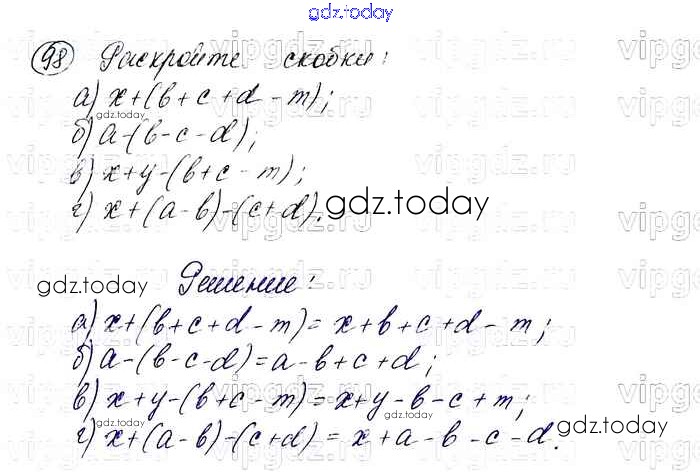 gdz.today
98 Раскройте скобки:
а) x+(b+c+d-m);
gdz.today
б) a-(b-c-d);
в) x+y-(b+c-m);
г) x+(a-b)-(c+d).
gdz.today
gdz.today
Решение:
а) x+(b+c+d-m)=x+b+c+d-m;
б) a-(b-c-d)=a-b+c+d;
в) x+y-(b+c-m)=x+y-b-c+m;
gdz.today
gdz.today
г) x+(a-b)-(c+d)=x+a-b-c-d.